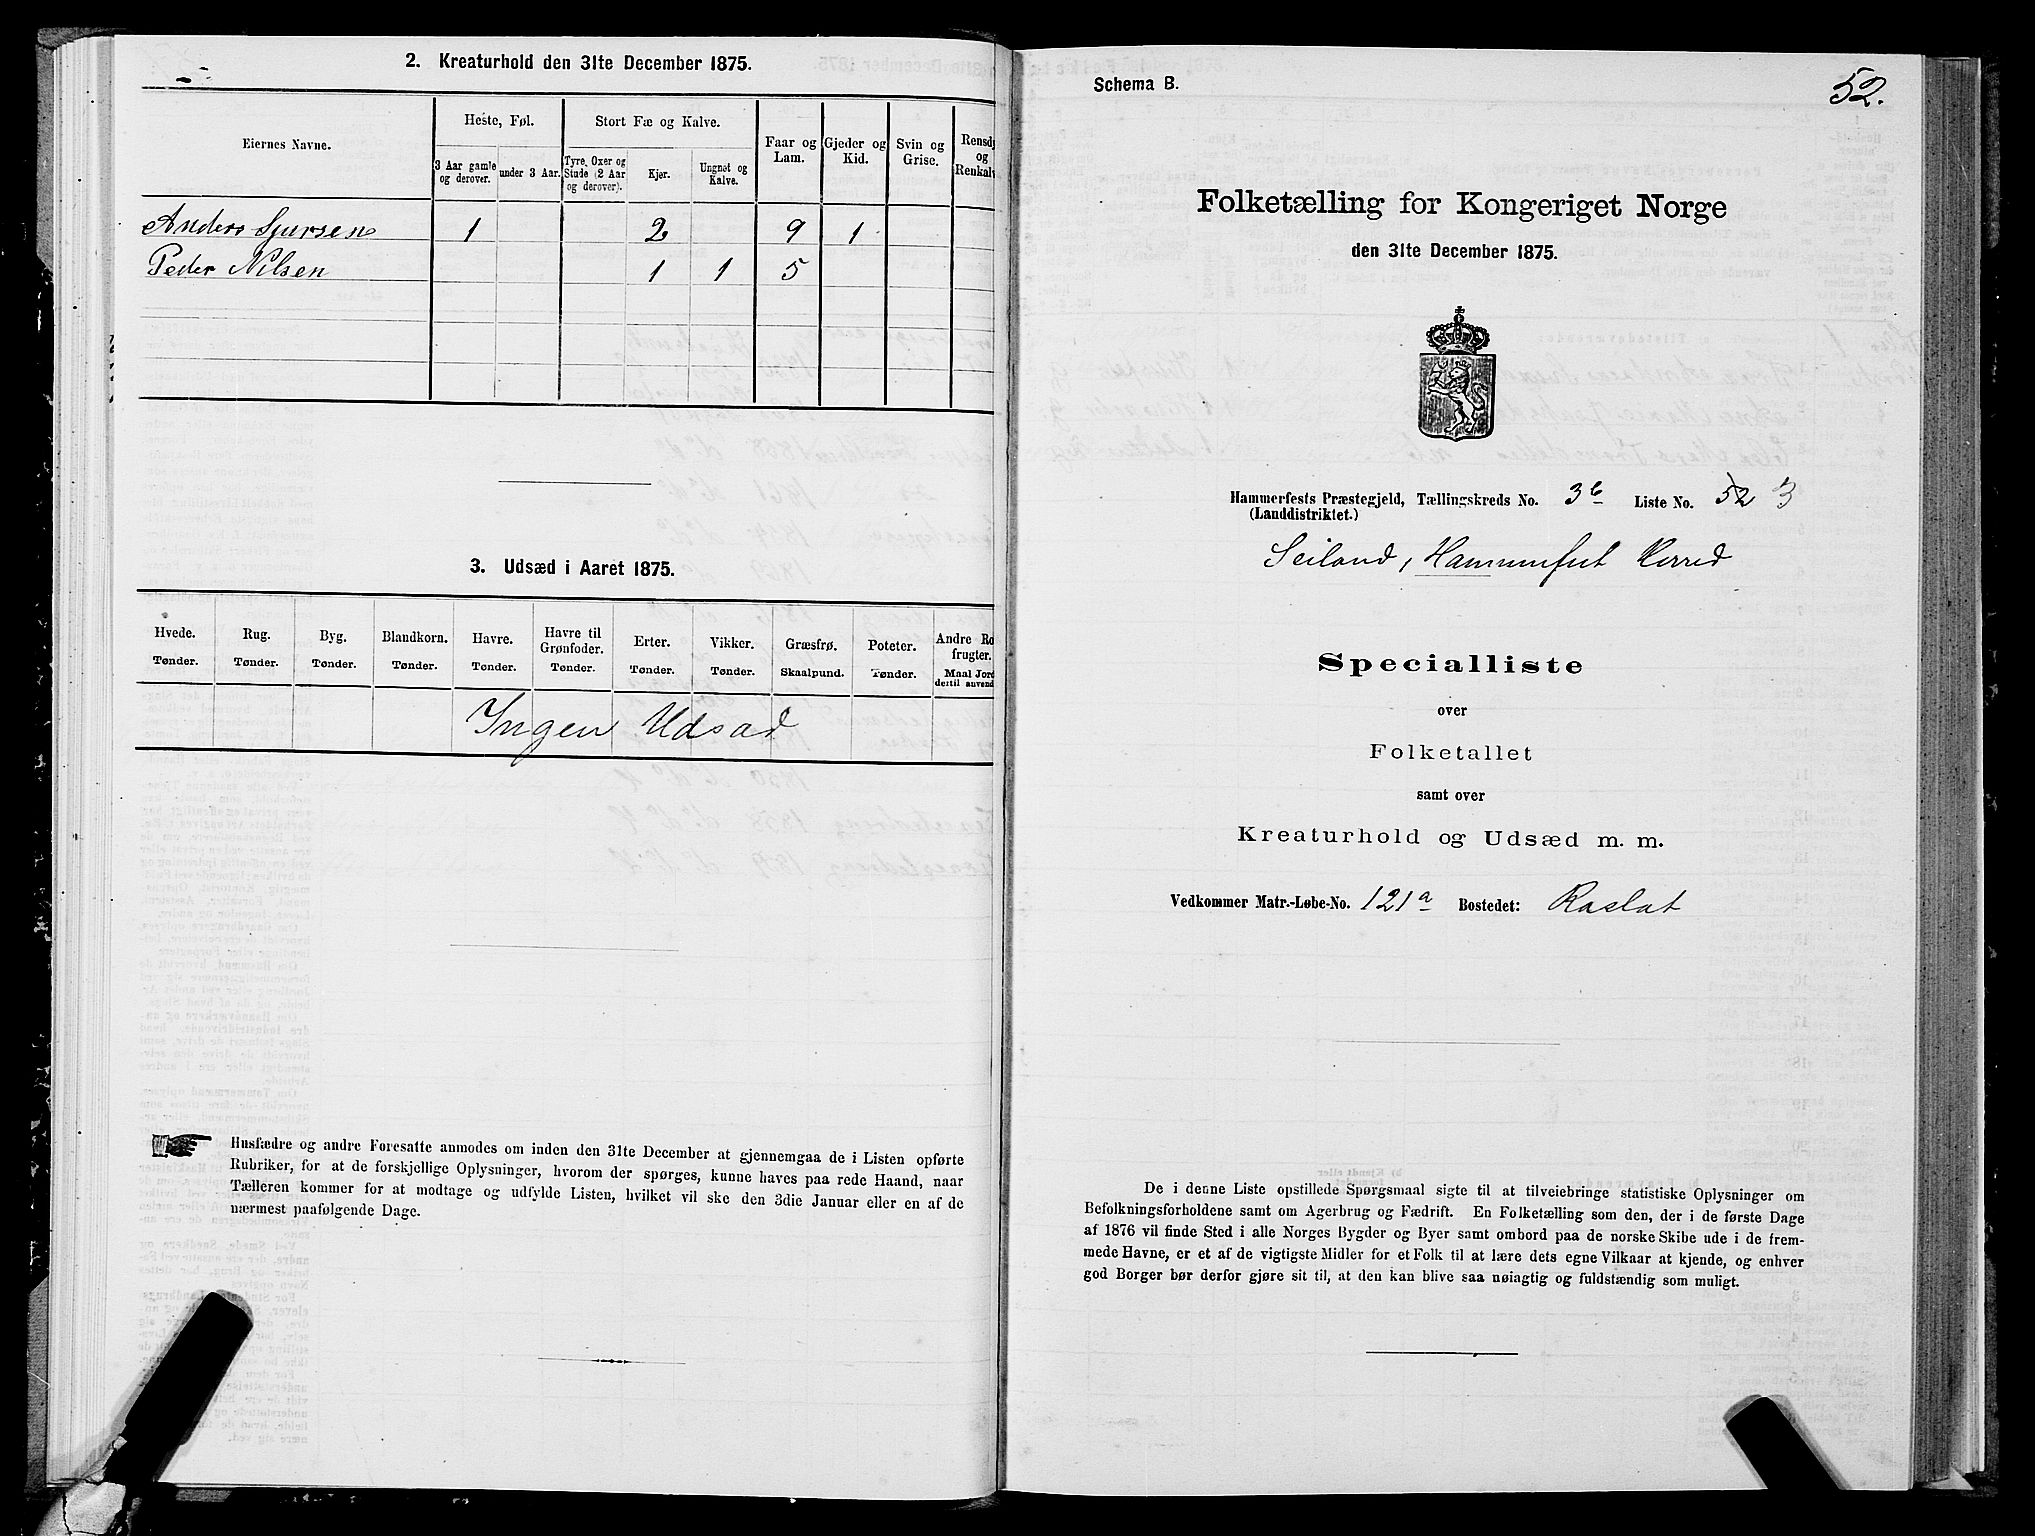 2. Kreaturhold den 31te December 1875.
Eiernes Navne.
Heste, Føl.
Stort Fæ og Kalve.
Faar og Lam.
Gjeder og Kid.
Svin og Grise.
Rensd
og
Renkalv
3 Aar gamle og derover.
under 3 Aar.
Tyre, Oxer og Stude (2 Aar og derover).
Kjør.
Ungnøt og Kalve.
Anders Sjursen 1 2 9 1
Peder Nilsen 1 1 5
3. Udsæd i Aaret 1875.
Hvede. Rug. Byg. Blandkorn. Havre. Havre til Grønfoder. Erter. Vikker. Græsfrø. Poteter. Andre Ro frugter.
Tønder. Tønder. Tønder. Tønder. Tønder. Tønder. Tønder. Tønder. Skaalpund. Tønder. Maal Jord dertil anvend
Ingen Udsæd
Husfædre og andre Foresatte anmodes om inden den 31te December at gjennemgaa de i Listen opførte
Rubriker, for at de forskjellige Oplysninger, hvorom der spørges, kunne haves paa rede Haand, naar
Tælleren kommer for at modtage og udfylde Listen, hvilket vil ske den 3die Januar eller en af de
nærmest paafølgende Dage.
Schema B.
52.
Folketælling for Kongeriget Norge
den 31te December 1875.
Hammerfests Præstegjeld, Tællingskreds No. 3b Liste No. 52 3
(Landdistriktet.)
Seiland, Hammerfest Herred
Specialliste
over
Folketallet
samt over
Kreaturhold og Udsæd m. m.
Vedkommer Matr.-Løbe-No. 121a Bostedet: Raslat
De i denne Liste opstillede Spørgsmaal sigte til at tilveiebringe statistiske Oplysninger om
Befolkningsforholdene samt om Agerbrug og Fædrift. En Folketælling som den, der i de første Dage
af 1876 vil finde Sted i alle Norges Bygder og Byer samt ombord paa de norske Skibe ude i de frem-
mede Havne, er et af de vigtigste Midler for et Folk til at lære dets egne Vilkaar at kjende, og enhver
god Borger bør derfor gjøre sit til, at den kan blive saa nøiagtig og fuldstændig som muligt.